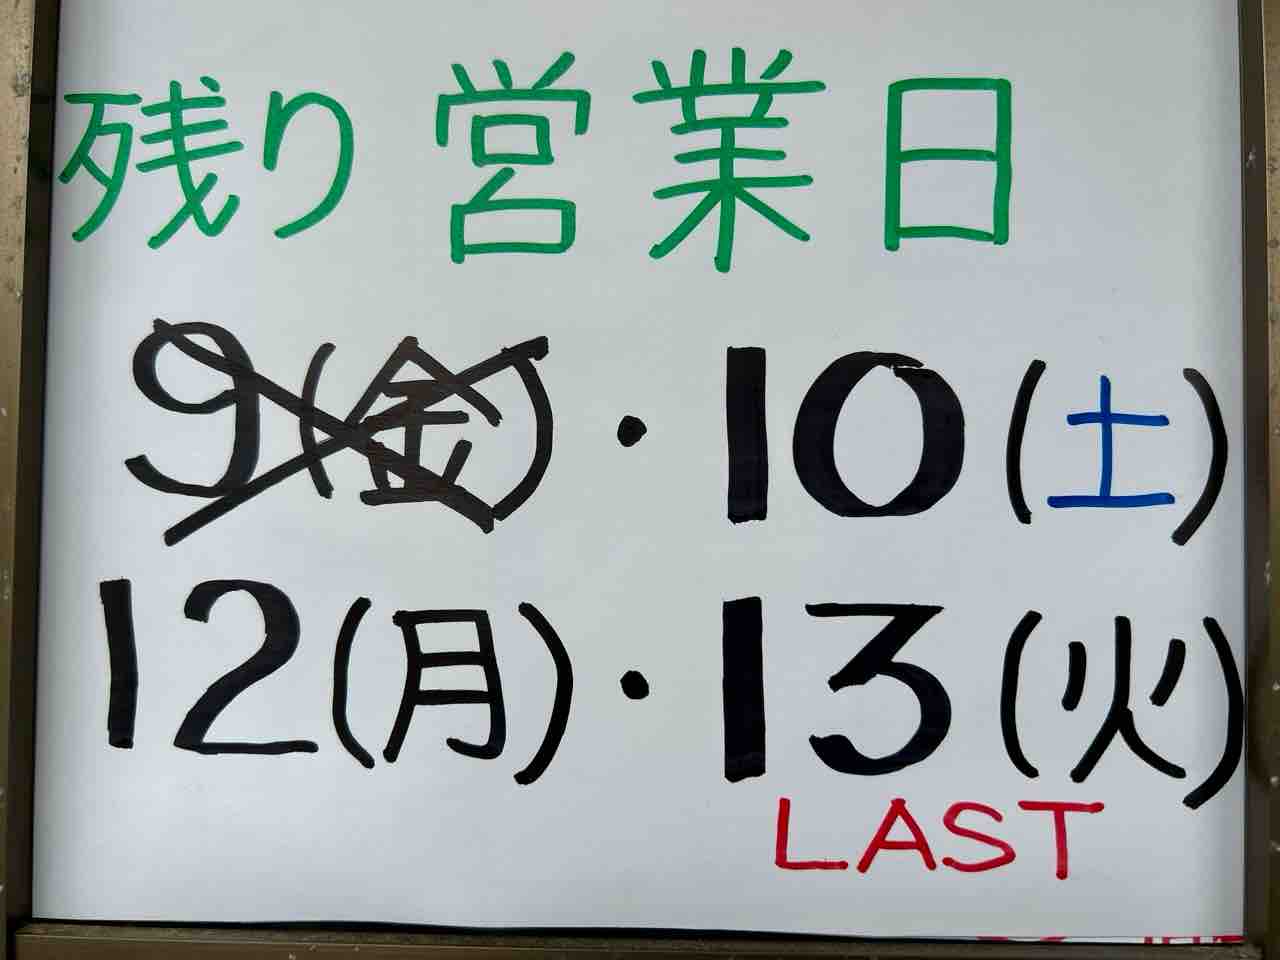 残り営業日
9(金)・10(土)
12(月)・13(火)
LAST